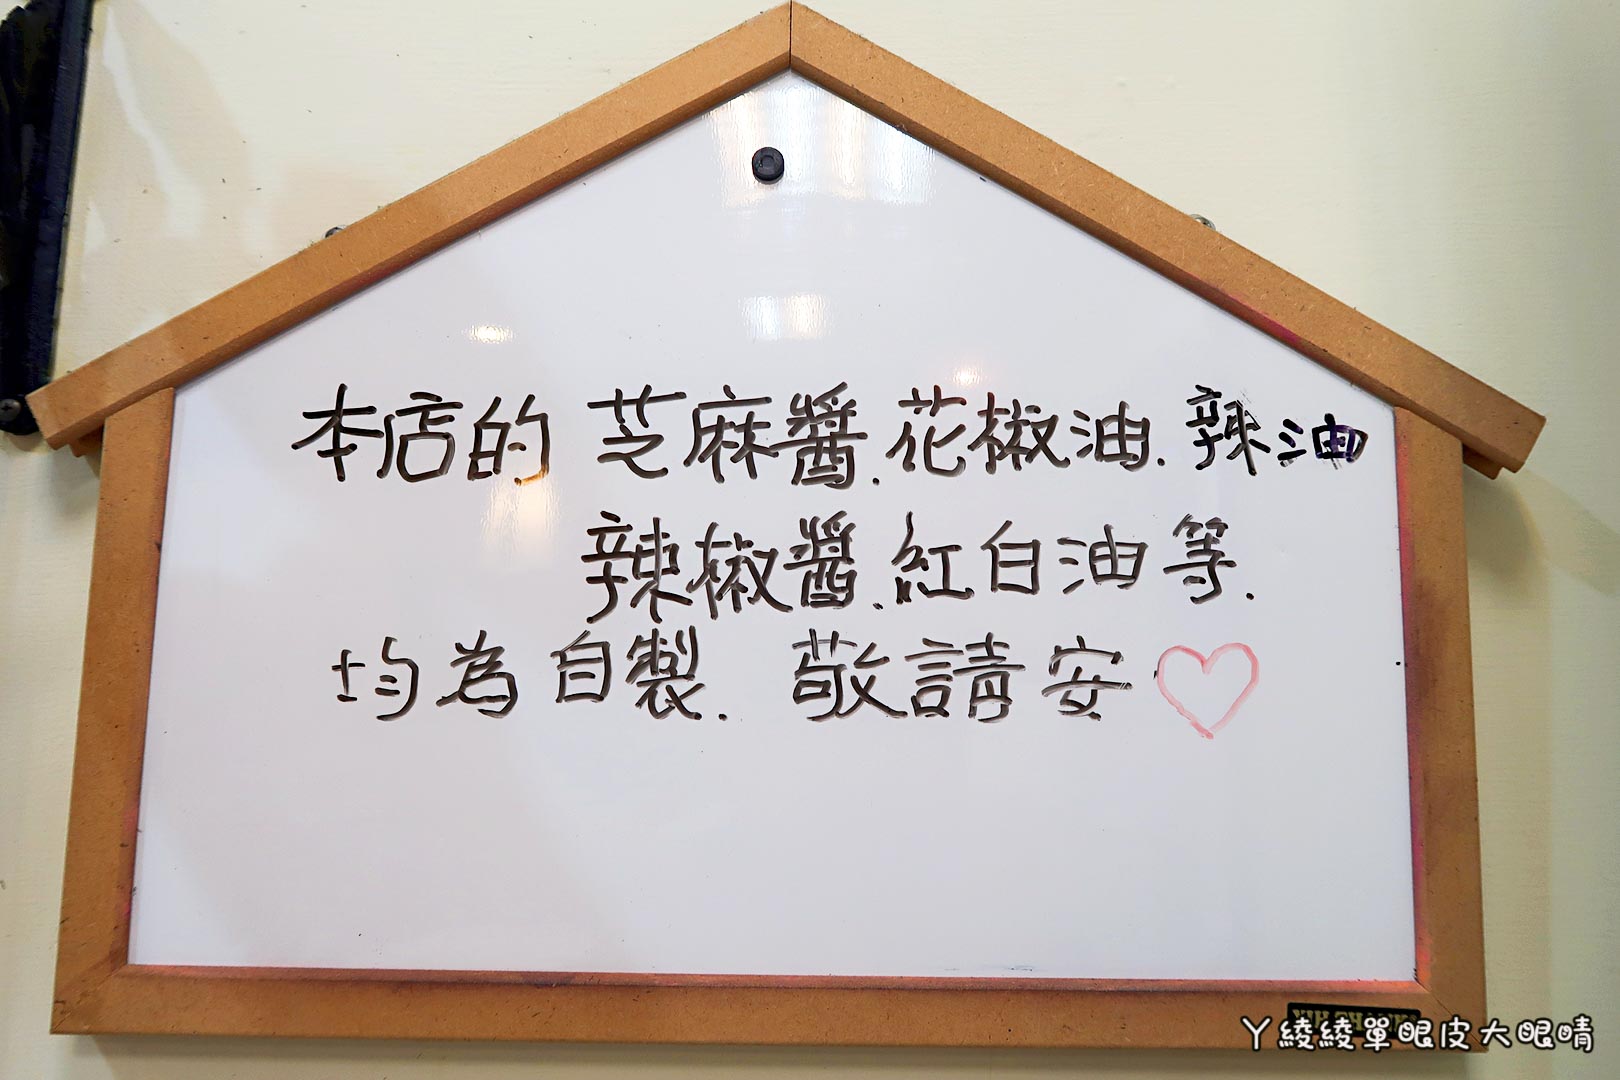 本店的 芝麻醬.花椒油.辣油
辣椒醬.紅白油等.
均為自製. 敬請安♡
ㄚ綾綾單眼皮大眼睛